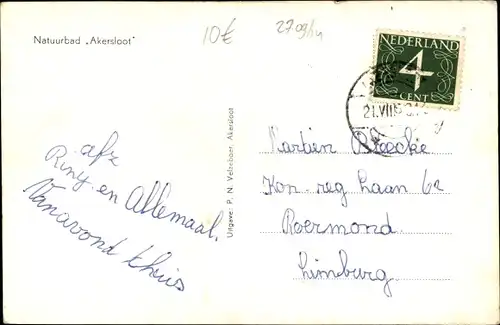 Natuurbad „Akersloot"
10€
NEDERLAND
4
CENT
21.VII
afz
Riny en Allemaal.
Vanavond thuis
Uitgave: P. N. Velzeboer, Akersloot
Kon. reg laan 62
Roermond.
Limburg.